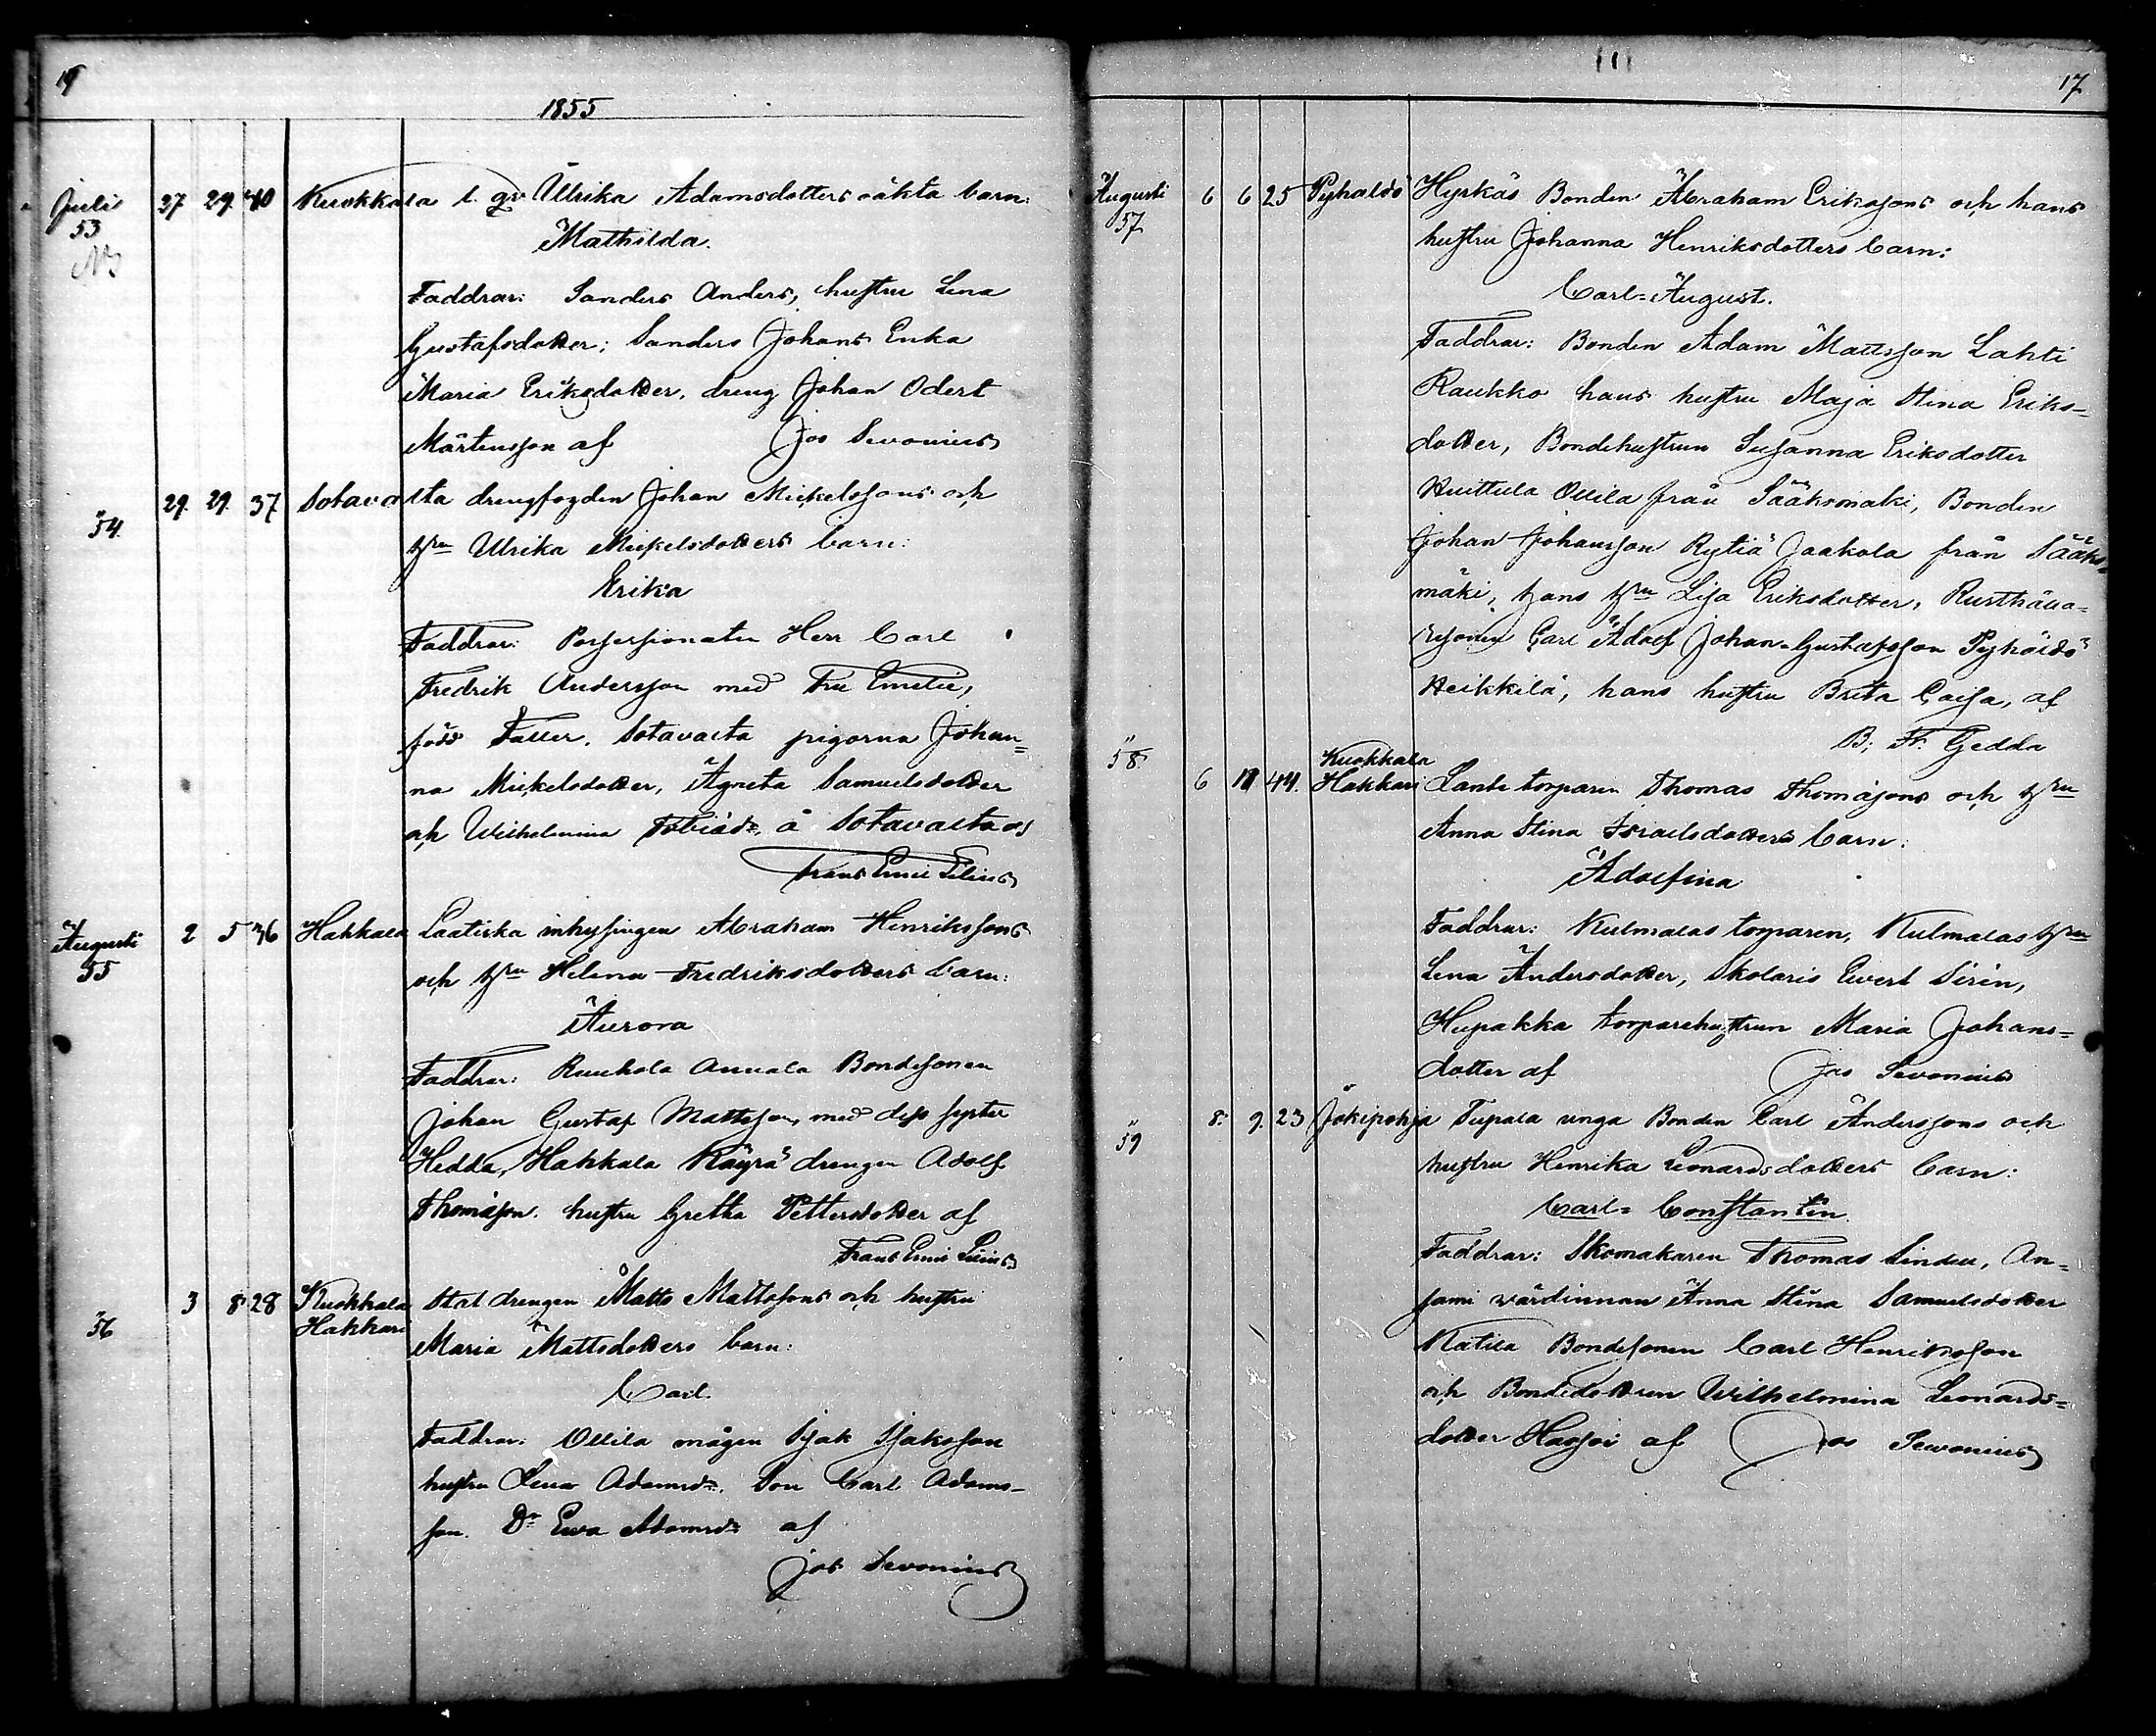 1855
Juli 53 27 29. 40 Kuokkala l. qv Ullrika Adamsdotters oäkta barn:
Mathilda.
Faddrar: Sanders Anders, hustru Lena
Gustafsdotter; Sanders Johans Enka
Maria Eriksdotter, dreng Johan Odert
Mårtensson af Jos Sevonius
54. 29. 29. 37 Sotavalta drengfogden Johan Mickelssons och
hru Ulrika Mickelsdotters barn:
Erika
Faddrar: Possessionaten Herr Carl
Fredrik Andersson med Fru Emelie,
född Faller. Sotavalta pigorna Johan=
na Mickelsdotter, Agneta Samuelsdotter
och Wilhelmina Tobiasdr å Sotavalta af
Frans Emil Silius
Augusti 55 2 5 36 Hakkala Laatiska inhysingen Abraham Henrikssons
och hru Helena Fredriksdotters barn:
Aurora
Faddrar: Ruuhola Annala Bondesonen
Johan Gustaf Mattsson, med dess syster
Hedda, Hakkala Räyrä drengen Adolf
Thomasson. hustru Gretha Pettersdotter af
Frans Emil Silius
56 3 8 28 Kuokkala Hakkari Stat drengen Matts Mattssons och hustru
Maria Mattsdotters barn:
Carl.
Faddrar: Ollila mågen Isak Isaksson
hustru Lena Adamsdr. Son Carl Adams-
son. Dr Ewa Adamsdr af
Jos Sevonius
17
Augusti 57 6 6 25 Pyhäldö Hyrkäs Bonden Abraham Erikssons och hans
hustru Johanna Henriksdotters barn:
Carl=August.
Faddrar: Bonden Adam Mattsson Lahti
Raukko hans hustru Maja Stina Eriks=
dotter, Bondehustrun Susanna Eriksdotter
Huittula Ollila från Sääksmäki, Bonden
Johan Johansson Rytiä Jaakola från Sääks=
mäki, hans hru Lisa Eriksdotter, Rusthålla=
resonen Carl Adolf Johan=Gustafsson Pyhäldö
Heikkilä, hans hustru Brita Caisa, af
B: Fr. Gedda
58. 6 44. Kuokkala Hakkari Lante torparen Thomas Thomassons och hru
Anna Stina Israelsdotters barn:
Adolfina
Faddrar: Kulmalas torparen, Kulmalas hru
Lena Andersdotter, Skolaris Ewert Sirén,
Hupakka torparehustrun Maria Johans=
dotter af Jos Sevonius
59 8. 9. 23 Jokipohja Tupala unga Bonden Carl Anderssons och
hustru Henrika Leonardsdotters barn:
Carl=Constantin
Faddrar: Skomakaren Thomas Linden, An=
sami värdinnan Anna Stina Samuelsdotter
Katila Bondesonen Carl Henriksson
och Bondedottren Wilhelmina Leonards=
dotter af Jos Sevonius